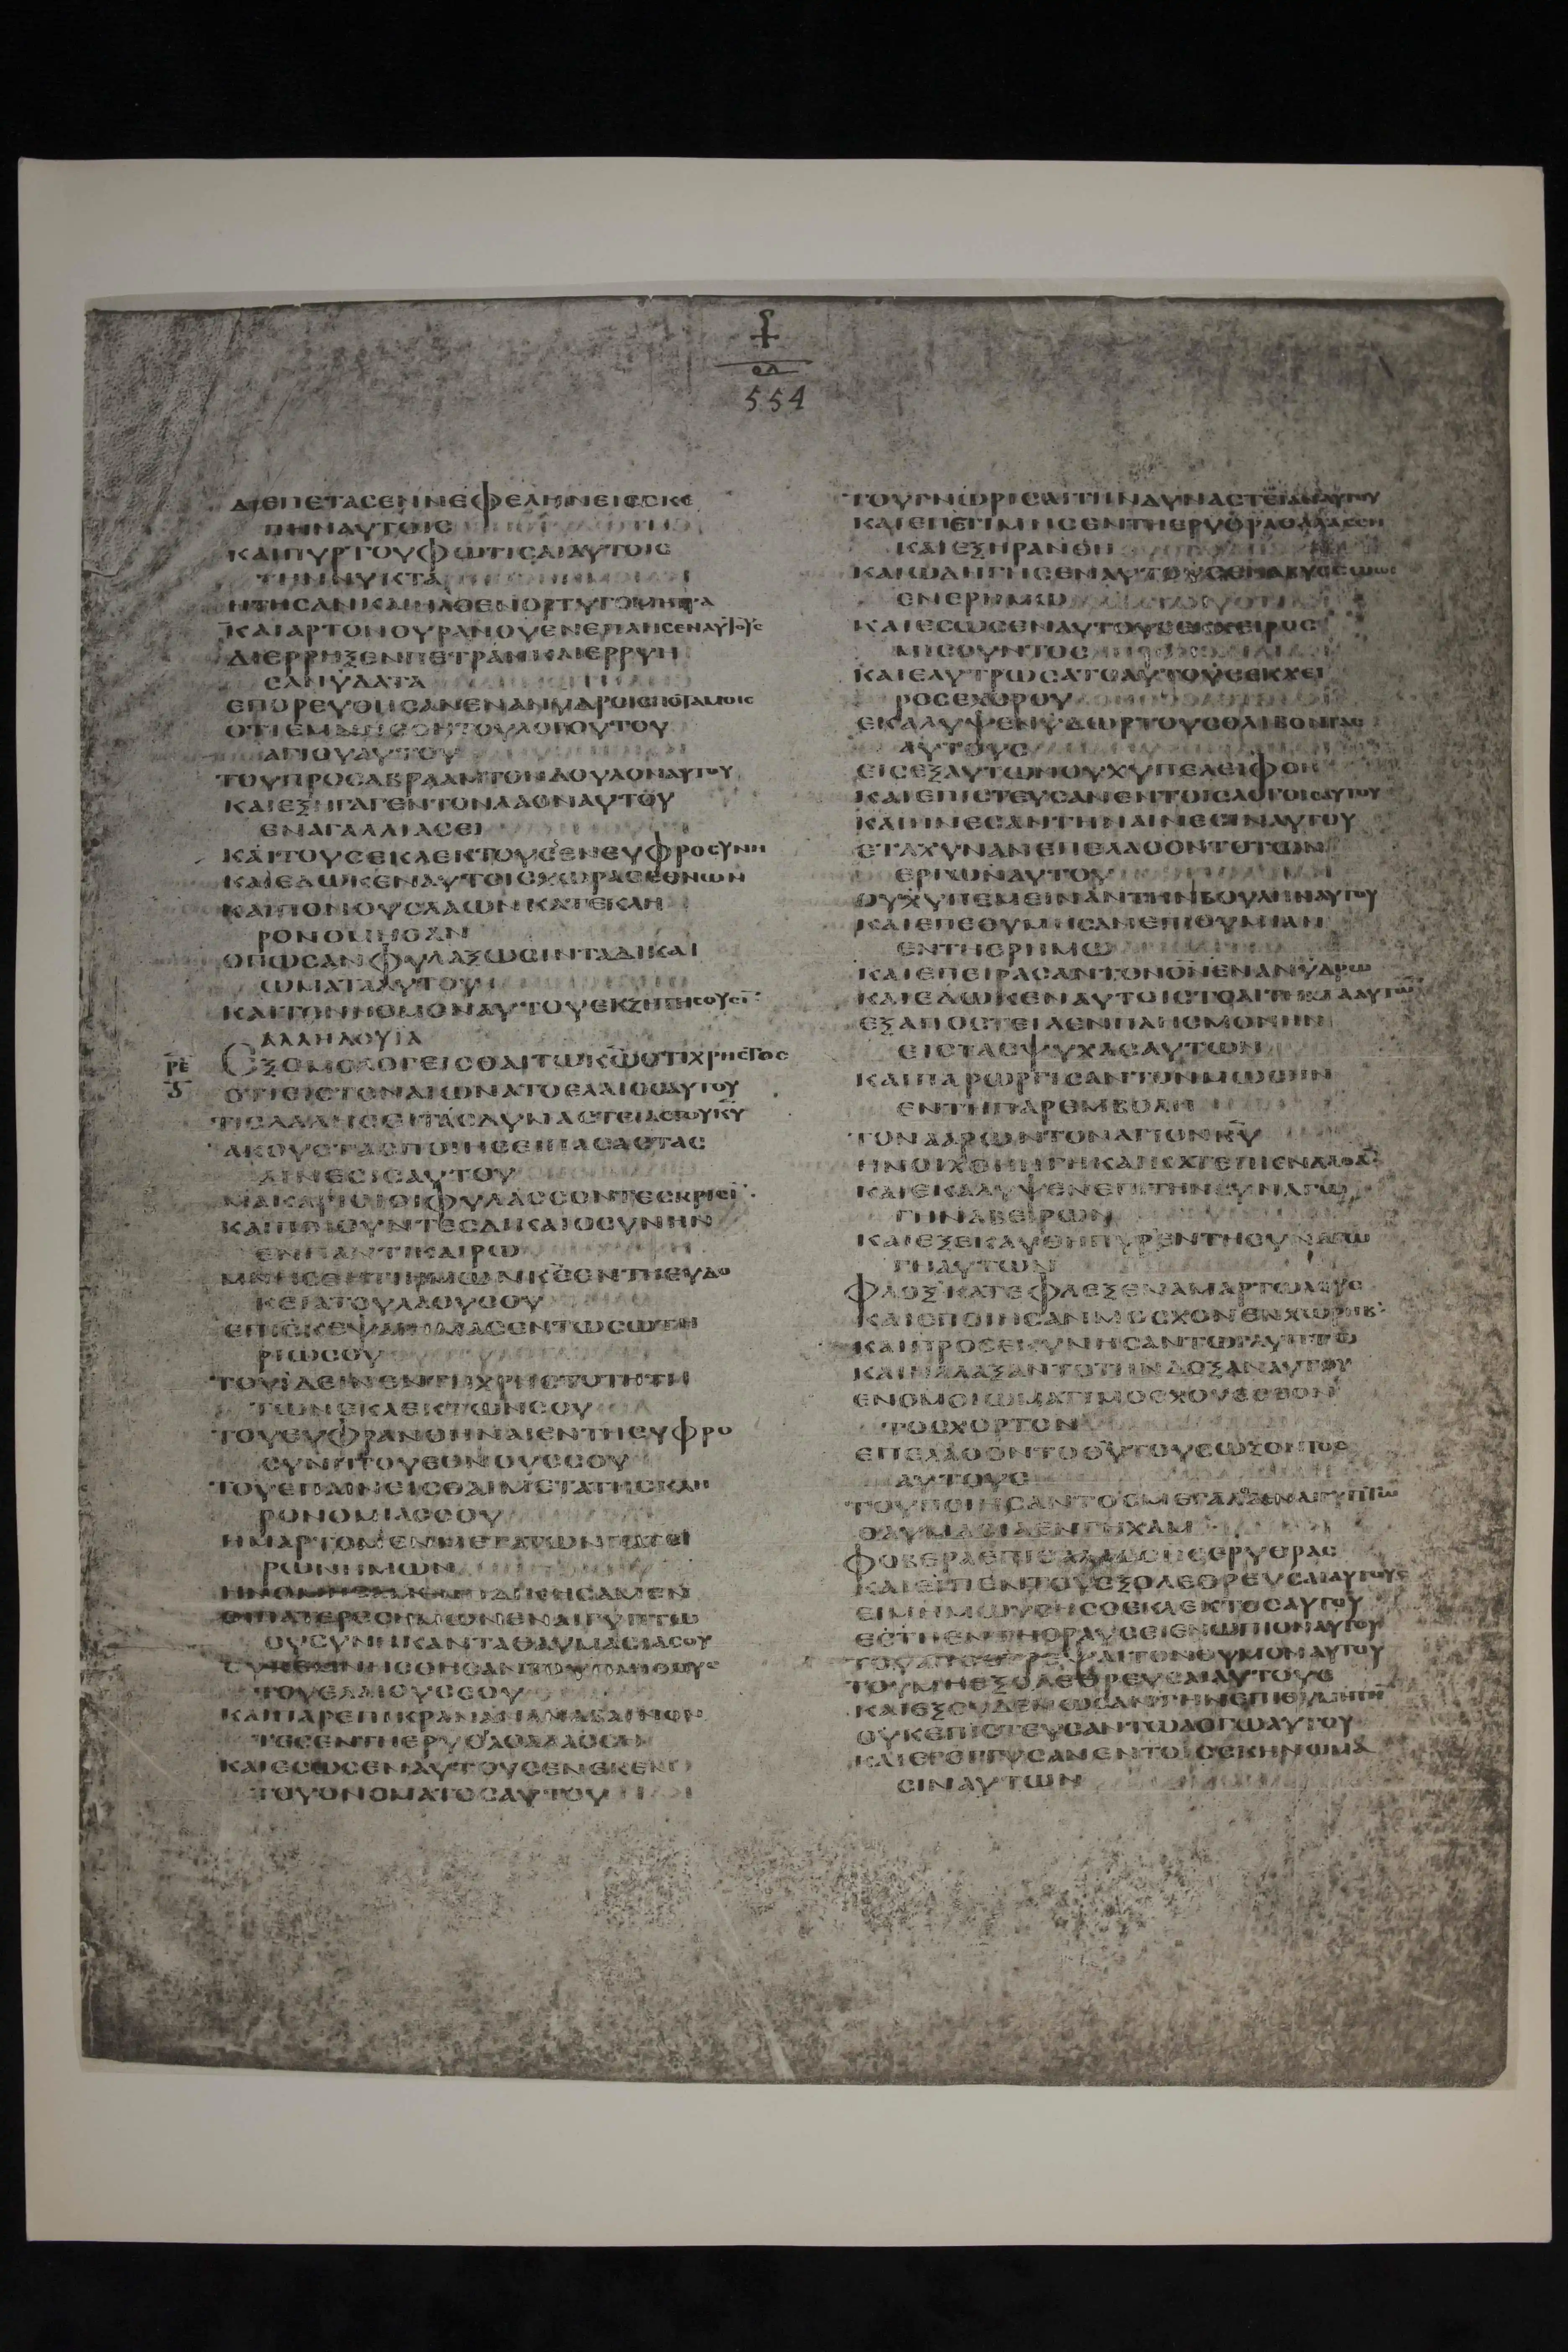 554
ΔΙΕΠΕΤΑΣΕΝΝΕΦΕΛΗΝΕΙΣΣΚΕ
ΠΗΝΑΥΤΟΙΣ
ΚΑΙΠΥΡΤΟΥΦΩΤΙΣΑΙΑΥΤΟΙΣ
ΤΗΝΝΥΚΤΑ
ΗΤΗΣΑΝΚΑΙΗΛΘΕΝΟΡΤΥΓΟΜΗΤΡΑ
ΚΑΙΑΡΤΟΝΟΥΡΑΝΟΥΕΝΕΠΛΗΣΕΝΑΥΤΟΥΣ
ΔΙΕΡΡΗΞΕΝΠΕΤΡΑΝΚΑΙΕΡΡΥΗ
ΣΑΝΥΔΑΤΑ
ΕΠΟΡΕΥΘΗΣΑΝΕΝΑΝΥΔΡΟΙΣΠΟΤΑΜΟΙΣ
ΟΤΙΕΜΝΗΣΘΗΤΟΥΛΟΓΟΥΤΟΥ
ΑΓΙΟΥΑΥΤΟΥ
ΤΟΥΠΡΟΣΑΒΡΑΑΜΤΟΝΔΟΥΛΟΝΑΥΤΟΥ
ΚΑΙΕΞΗΓΑΓΕΝΤΟΝΛΑΟΝΑΥΤΟΥ
ΕΝΑΓΑΛΛΙΑΣΕΙ
ΚΑΙΤΟΥΣΕΚΛΕΚΤΟΥΣΕΝΕΥΦΡΟΣΥΝΗ
ΚΑΙΕΔΩΚΕΝΑΥΤΟΙΣΧΩΡΑΣΕΘΝΩΝ
ΚΑΙΠΟΝΟΥΣΛΑΩΝΚΑΤΕΚΛΗ
ΡΟΝΟΜΗΣΑΝ
ΟΠΩΣΑΝΦΥΛΑΞΩΣΙΝΤΑΔΙΚΑΙ
ΩΜΑΤΑΑΥΤΟΥ
ΚΑΙΤΟΝΝΟΜΟΝΑΥΤΟΥΕΚΖΗΤΗΣΟΥΣΙ
ΑΛΛΗΛΟΥΙΑ
ΡΕ
ΕΞΟΜΟΛΟΓΕΙΣΘΑΙΤΩΚΩΟΤΙΧΡΗΣΤΟΣ
ΟΤΙΕΙΣΤΟΝΑΙΩΝΑΤΟΕΛΑΙΟΣΑΥΤΟΥ
ΤΙΣΛΑΛΗΣΕΙΤΑΣΔΥΝΑΣΤΕΙΑΣΤΟΥΚΥ
ΑΚΟΥΣΤΑΣΠΟΙΗΣΕΙΠΑΣΑΣΤΑΣ
ΑΙΝΕΣΙΣΑΥΤΟΥ
ΜΑΚΑΡΙΟΙΟΙΦΥΛΑΣΣΟΝΤΕΣΚΡΙΣΙ
ΚΑΙΠΟΙΟΥΝΤΕΣΔΙΚΑΙΟΣΥΝΗΝ
ΕΝΠΑΝΤΙΚΑΙΡΩ
ΜΝΗΣΘΗΤΙΗΜΩΝΚΣΕΝΤΗΕΥΔΟ
ΚΕΙΑΤΟΥΛΑΟΥΣΟΥ
ΕΠΙΣΚΕΨΑΙΗΜΑΣΕΝΤΩΣΩΤΗ
ΡΙΩΣΟΥ
ΤΟΥΙΔΕΙΝΕΝΤΗΧΡΗΣΤΟΤΗΤΗ
ΤΩΝΕΚΛΕΚΤΩΝΣΟΥ
ΤΟΥΕΥΦΡΑΝΘΗΝΑΙΕΝΤΗΕΥΦΡΟ
ΣΥΝΗΤΟΥΕΘΝΟΥΣΣΟΥ
ΤΟΥΕΠΑΙΝΕΙΣΘΑΙΜΕΤΑΤΗΣΚΛΗ
ΡΟΝΟΜΙΑΣΣΟΥ
ΗΜΑΡΤΟΜΕΝΜΕΤΑΤΩΝΠΑΤΕ
ΡΩΝΗΜΩΝ
ΗΝΟΜΗΣΑΜΕΝΗΔΙΚΗΣΑΜΕΝ
ΟΙΠΑΤΕΡΕΣΗΜΩΝΕΝΑΙΓΥΠΤΩ
ΟΥΣΥΝΗΚΑΝΤΑΘΑΥΜΑΣΙΑΣΟΥ
ΤΟΥΕΛΑΙΟΥΣΣΟΥ
ΚΑΙΠΑΡΕΠΙΚΡΑΝΑΝΑΝΑΒΑΙΝΟΝ
ΤΕΣΕΝΤΗΕΡΥΘΡΑΘΑΛΑΣΣΗ
ΚΑΙΕΣΩΣΕΝΑΥΤΟΥΣΕΝΕΚΕΝ
ΤΟΥΟΝΟΜΑΤΟΣΑΥΤΟΥ
ΤΟΥΓΝΩΡΙΣΑΙΤΗΝΔΥΝΑΣΤΕΙΑΝΑΥΤΟΥ
ΚΑΙΕΠΕΤΙΜΗΣΕΝΤΗΕΡΥΘΡΑΘΑΛΑΣΣΗ
ΚΑΙΕΞΗΡΑΝΘΗ
ΚΑΙΩΔΗΓΗΣΕΝΑΥΤΟΥΣΕΝΑΒΥΣΣΩΩΣ
ΕΝΕΡΗΜΩ
ΚΑΙΕΣΩΣΕΝΑΥΤΟΥΣΕΚΧΕΙΡΟΣ
ΜΙΣΟΥΝΤΟΣ
ΚΑΙΕΛΥΤΡΩΣΑΤΟΑΥΤΟΥΣΕΚΧΕΙ
ΡΟΣΕΧΘΡΟΥ
ΕΚΑΛΥΨΕΝΥΔΩΡΤΟΥΣΘΛΙΒΟΝΤΑΣ
ΑΥΤΟΥΣ
ΕΙΣΕΞΑΥΤΩΝΟΥΧΥΠΕΛΕΙΦΘΗ
ΚΑΙΕΠΙΣΤΕΥΣΑΝΕΝΤΟΙΣΛΟΓΟΙΣΑΥΤΟΥ
ΚΑΙΗΝΕΣΑΝΤΗΝΑΙΝΕΣΙΝΑΥΤΟΥ
ΕΤΑΧΥΝΑΝΕΠΕΛΑΘΟΝΤΟΤΩΝ
ΕΡΓΩΝΑΥΤΟΥ
ΟΥΧΥΠΕΜΕΙΝΑΝΤΗΝΒΟΥΛΗΝΑΥΤΟΥ
ΚΑΙΕΠΕΘΥΜΗΣΑΝΕΠΙΘΥΜΙΑΝ
ΕΝΤΗΕΡΗΜΩ
ΚΑΙΕΠΕΙΡΑΣΑΝΤΟΝΘΝΕΝΑΝΥΔΡΩ
ΚΑΙΕΔΩΚΕΝΑΥΤΟΙΣΤΟΑΙΤΗΜΑΑΥΤΩΝ
ΕΞΑΠΕΣΤΕΙΛΕΝΠΛΗΣΜΟΝΗΝ
ΕΙΣΤΑΣΨΥΧΑΣΑΥΤΩΝ
ΚΑΙΠΑΡΩΡΓΙΣΑΝΤΟΝΜΩΣΗΝ
ΕΝΤΗΠΑΡΕΜΒΟΛΗ
ΤΟΝΑΑΡΩΝΤΟΝΑΓΙΟΝΚΥ
ΗΝΟΙΧΘΗΗΓΗΚΑΙΚΑΤΕΠΙΕΝΔΑΘΑ
ΚΑΙΕΚΑΛΥΨΕΝΕΠΙΤΗΝΣΥΝΑΓΩ
ΓΗΝΑΒΕΙΡΩΝ
ΚΑΙΕΞΕΚΑΥΘΗΠΥΡΕΝΤΗΣΥΝΑΓΩ
ΓΗΑΥΤΩΝ
ΦΛΟΞΚΑΤΕΦΛΕΞΕΝΑΜΑΡΤΩΛΟΥΣ
ΚΑΙΕΠΟΙΗΣΑΝΜΟΣΧΟΝΕΝΧΩΡΗΒ
ΚΑΙΠΡΟΣΕΚΥΝΗΣΑΝΤΩΓΛΥΠΤΩ
ΚΑΙΗΛΛΑΞΑΝΤΟΤΗΝΔΟΞΑΝΑΥΤΟΥ
ΕΝΟΜΟΙΩΜΑΤΙΜΟΣΧΟΥΕΣΘΟΝ
ΤΟΣΧΟΡΤΟΝ
ΕΠΕΛΑΘΟΝΤΟΘΥΤΟΥΣΩΖΟΝΤΟΣ
ΑΥΤΟΥΣ
ΤΟΥΠΟΙΗΣΑΝΤΟΣΜΕΓΑΛΑΕΝΑΙΓΥΠΤΩ
ΘΑΥΜΑΣΙΑΕΝΓΗΧΑΜ
ΦΟΒΕΡΑΕΠΙΘΑΛΑΣΣΗΣΕΡΥΘΡΑΣ
ΚΑΙΕΙΠΕΝΤΟΥΕΞΟΛΕΘΡΕΥΣΑΙΑΥΤΟΥΣ
ΕΙΜΗΜΩΥΣΗΣΟΕΚΛΕΚΤΟΣΑΥΤΟΥ
ΕΣΤΗΕΝΤΗΘΡΑΥΣΕΙΕΝΩΠΙΟΝΑΥΤΟΥ
ΤΟΥΑΠΟΣΤΡΕΨΑΙΤΟΝΘΥΜΟΝΑΥΤΟΥ
ΤΟΥΜΗΕΞΟΛΕΘΡΕΥΣΑΙΑΥΤΟΥΣ
ΚΑΙΕΞΟΥΔΕΝΩΣΑΝΤΗΝΕΠΙΘΥΜΗΤΗ
ΟΥΚΕΠΙΣΤΕΥΣΑΝΤΩΛΟΓΩΑΥΤΟΥ
ΚΑΙΕΓΟΓΓΥΣΑΝΕΝΤΟΙΣΣΚΗΝΩΜΑ
ΣΙΝΑΥΤΩΝ